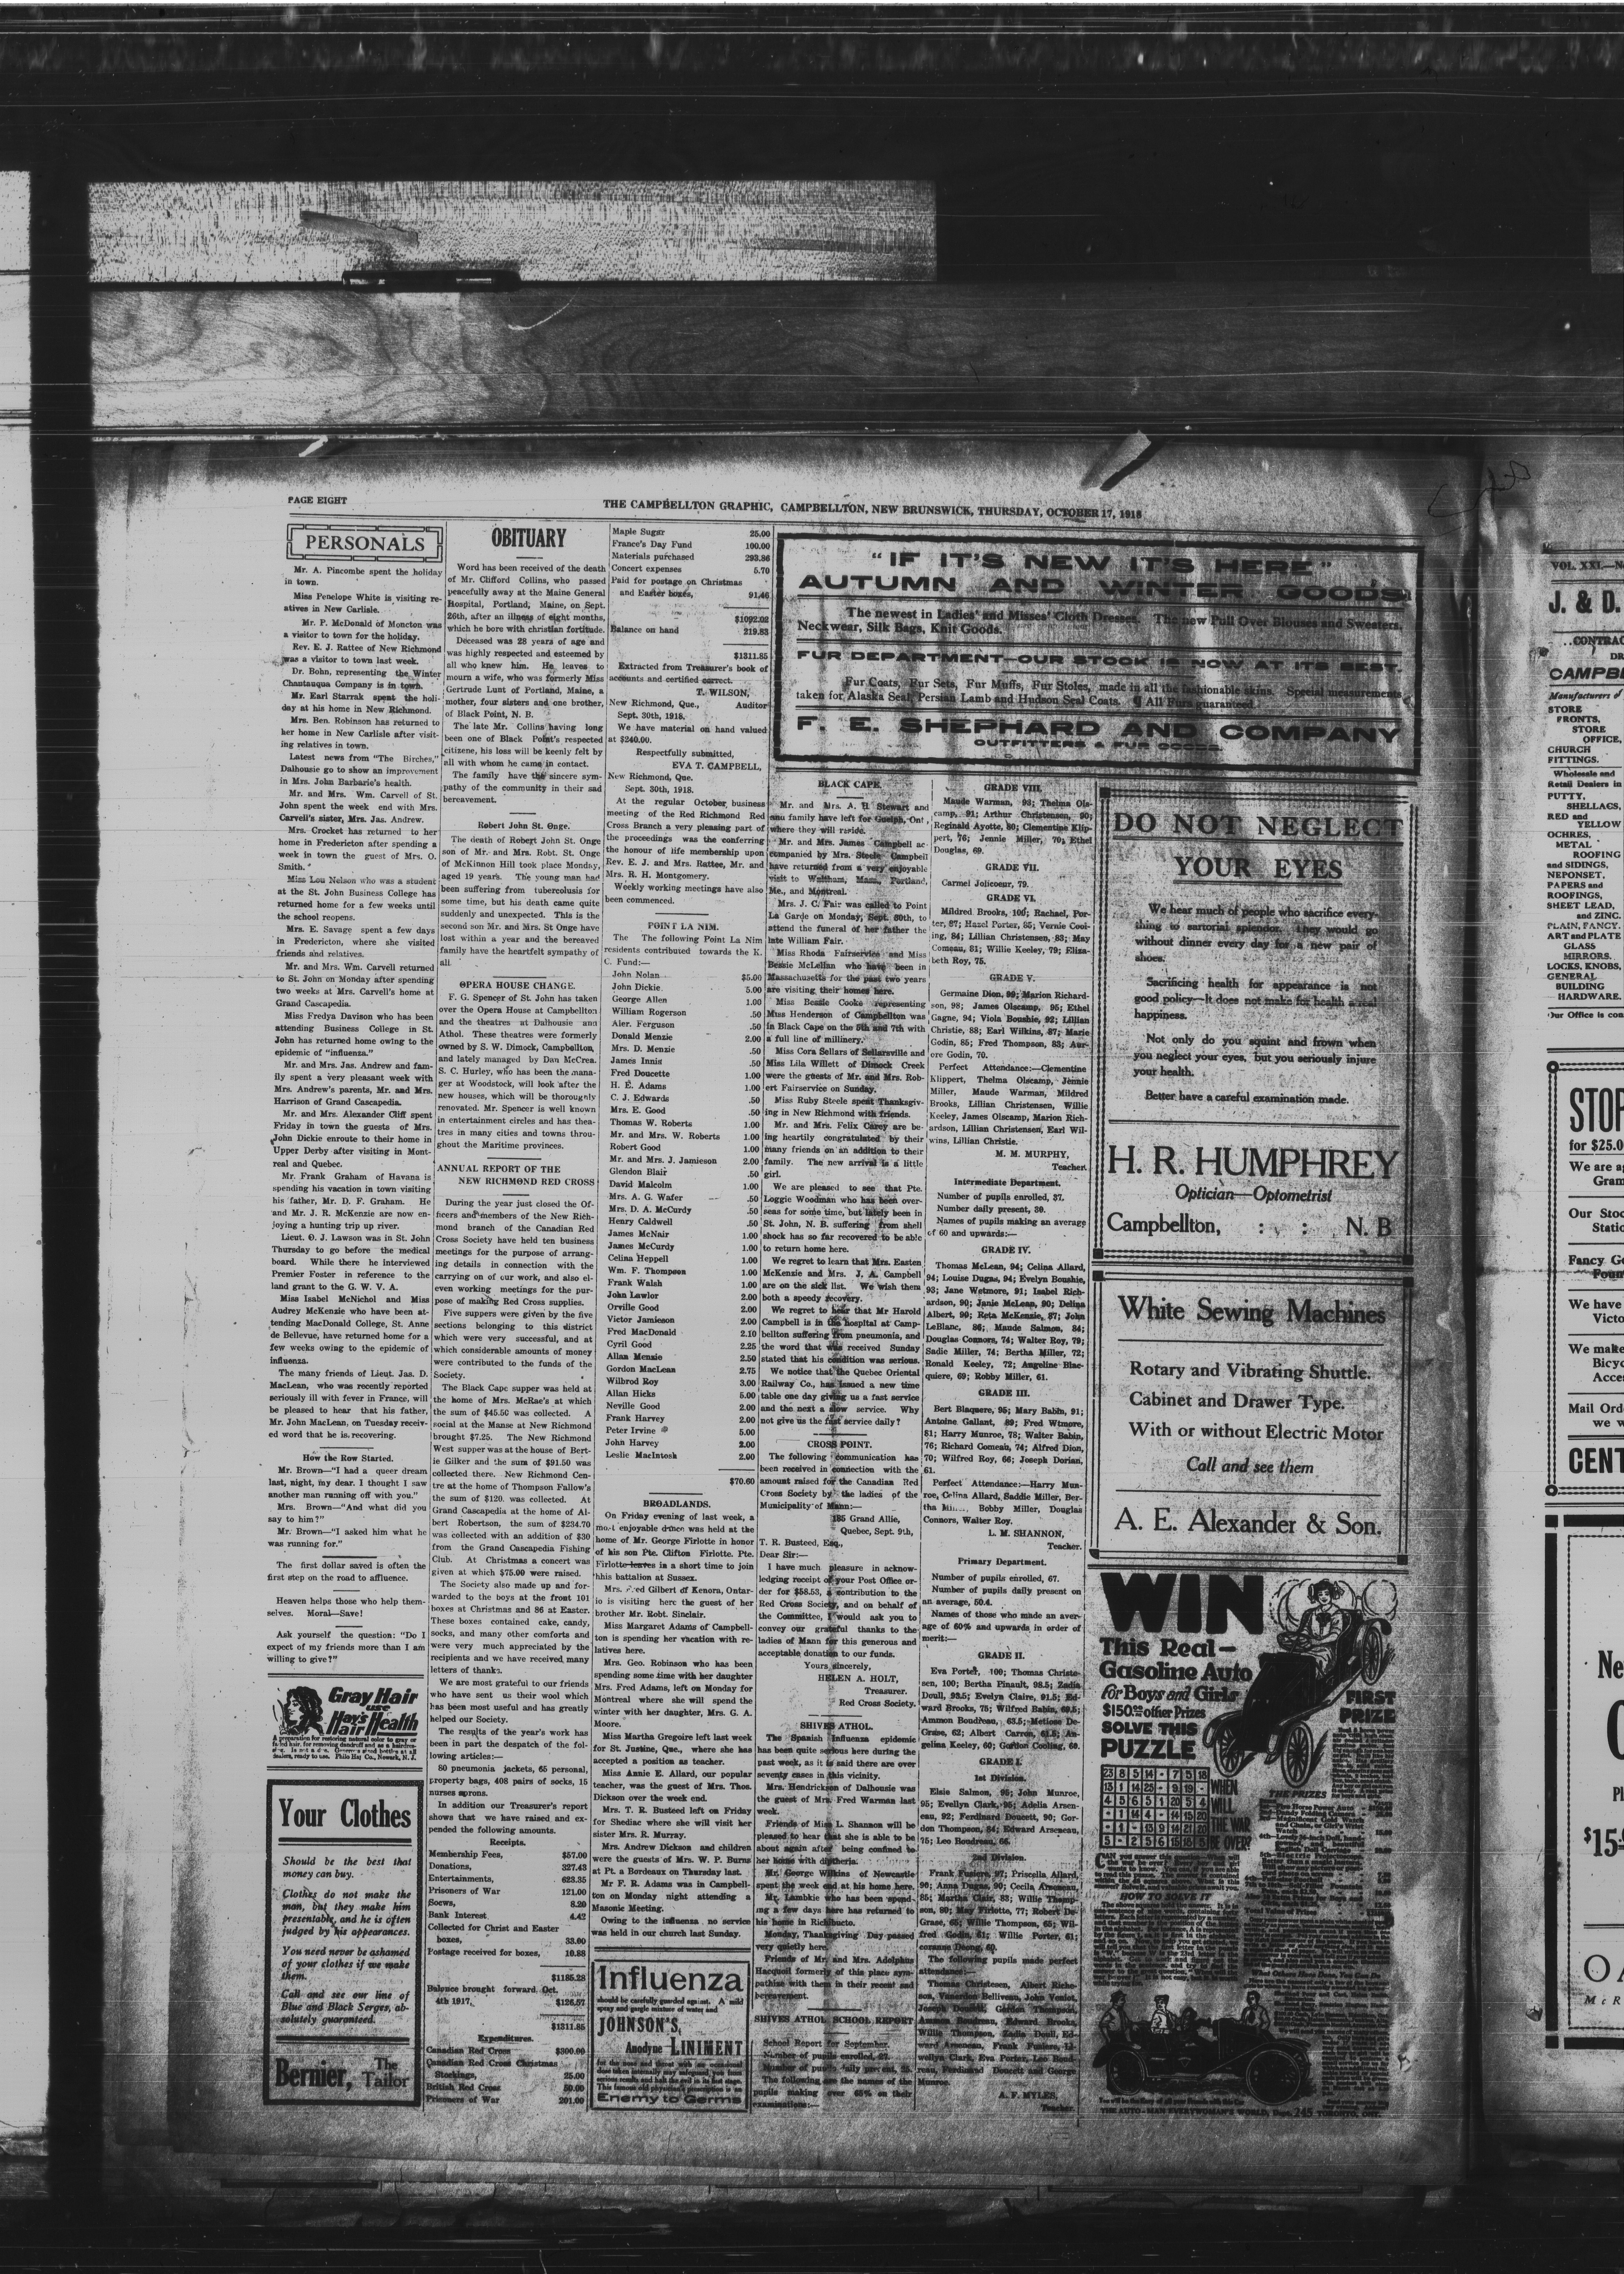 PAGE EIGHT
THE CAMPBELLTON GRAPHIC, CAMPBELLTON, NEW BRUNSWICK, THURSDAY, OCTOBER 17, 1918
PERSONALS
Mr. A. Pincombe spent the holiday
in town.
Miss Penelope White is visiting re-
atives in New Carlisle.
Mr. P. McDonald of Moncton was
a visitor to town for the holiday.
Rev. E. J. Rattee of New Richmond
was a visitor to town last week.
Dr. Bohn, representing the Winter
Chautauqua Company is in town.
Mr. Earl Starrak spent the holi-
day at his home in New Richmond.
Mrs. Ben. Robinson has returned to
her home in New Carlisle after visit-
ing relatives in town.
Latest news from "The Birches,"
Dalhousie go to show an improvement
in Mrs. John Barbarie's health.
Mr. and Mrs. Wm. Carvell of St.
John spent the week end with Mrs.
Carvell's sister, Mrs. Jas. Andrew.
Mrs. Crocket has returned to her
home in Fredericton after spending a
week in town the guest of Mrs. O.
Smith.
Miss Lou Nelson who was a student
at the St. John Business College has
returned home for a few weeks until
the school reopens.
Mrs. E. Savage spent a few days
in Fredericton, where she visited
friends and relatives.
Mr. and Mrs. Wm. Carvell returned
to St. John on Monday after spending
two weeks at Mrs. Carvell's home at
Grand Cascapedia.
Miss Fredya Davison who has been
attending Business College in St.
John has returned home owing to the
epidemic of "influenza."
Mr. and Mrs. Jas. Andrew and fam-
ily spent a very pleasant week with
Mrs. Andrew's parents, Mr. and Mrs.
Harrison of Grand Cascapedia.
Mr. and Mrs. Alexander Cliff spent
Friday in town the guests of Mrs.
John Dickie enroute to their home in
Upper Derby after visiting in Mont-
real and Quebec.
Mr. Frank Graham of Havana is
spending his vacation in town visiting
his father, Mr. D. F. Graham. He
and Mr. J. R. McKenzie are now en-
joying a hunting trip up river.
Lieut. O. J. Lawson was in St. John
Thursday to go before the medical
board. While there he interviewed
Premier Foster in reference to the
land grant to the G. W. V. A.
Miss Isabel McNichol and Miss
Audrey McKenzie who have been at-
tending MacDonald College, St. Anne
de Bellevue, have returned home for a
few weeks owing to the epidemic of
influenza.
The many friends of Lieut. Jas. D.
MacLean, who was recently reported
seriously ill with fever in France, will
be pleased to hear that his father,
Mr. John MacLean, on Tuesday receiv-
ed word that he is recovering.
How the Row Started.
Mr. Brown—"I had a queer dream
last, night, my dear. I thought I saw
another man running off with you."
Mrs. Brown—"And what did you
say to him?"
Mr. Brown—"I asked him what he
was running for."
The first dollar saved is often the
first step on the road to affluence.
Heaven helps those who help them-
selves. Moral—Save!
Ask yourself the question: "Do I
expect of my friends more than I am
willing to give?"
Gray Hair
use
Hay's
Hair Health
A preparation for restoring natural color to gray or
faded hair, for removing dandruff and as a hairdres-
dealers, ready to use. Philo Hay Co., Newark, N. J.
Your Clothes
Should be the best that
money can buy.
Clothes do not make the
man, but they make him
presentable, and he is often
judged by his appearances.
You need never be ashamed
of your clothes if we make
them.
Call and see our line of
Blue and Black Serges, ab-
solutely guaranteed.
Bernier, The
Tailor
OBITUARY
Word has been received of the death
of Mr. Clifford Collins, who passed
peacefully away at the Maine General
Hospital, Portland, Maine, on Sept.
26th, after an illness of eight months,
which he bore with christian fortitude.
Deceased was 28 years of age and
was highly respected and esteemed by
all who knew him. He leaves to
mourn a wife, who was formerly Miss
Gertrude Lunt of Portland, Maine, a
mother, four sisters and one brother,
of Black Point, N. B.
The late Mr. Collins having long
been one of Black Point's respected
citizene, his loss will be keenly felt by
all with whom he came in contact.
The family have the sincere sym-
pathy of the community in their sad
bereavement.
Robert John St. Onge.
The death of Robert John St. Onge
son of Mr. and Mrs. Robt. St. Onge
of McKinnon Hill took place Monday,
aged 19 years. The young man had
been suffering from tuberculosis for
some time, but his death came quite
suddenly and unexpected. This is the
second son Mr. and Mrs. St Onge have
lost within a year and the bereaved
family have the heartfelt sympathy of
all.
OPERA HOUSE CHANGE.
F. G. Spencer of St. John has taken
over the Opera House at Campbellton
and the theatres at Dalhousie and
Athol. These theatres were formerly
owned by S. W. Dimock, Campbellton,
and lately managed by Dan McCrea.
S. C. Hurley, who has been the mana-
ger at Woodstock, will look after the
new houses, which will be thoroughly
renovated. Mr. Spencer is well known
in entertainment circles and has thea-
tres in many cities and towns throu-
ghout the Maritime provinces.
ANNUAL REPORT OF THE
NEW RICHMOND RED CROSS
During the year just closed the Of-
ficers and members of the New Rich-
mond branch of the Canadian Red
Cross Society have held ten business
meetings for the purpose of arrang-
ing details in connection with the
carrying on of our work, and also el-
even working meetings for the pur-
pose of making Red Cross supplies.
Five suppers were given by the five
sections belonging to this district
which were very successful, and at
which considerable amounts of money
were contributed to the funds of the
Society.
The Black Cape supper was held at
the home of Mrs. McRae's at which
the sum of $45.50 was collected. A
social at the Manse at New Richmond
brought $7.25. The New Richmond
West supper was at the house of Bert-
ie Gilker and the sum of $91.50 was
collected there. New Richmond Cen-
tre at the home of Thompson Fallow's
the sum of $120. was collected. At
Grand Cascapedia at the home of Al-
bert Robertson, the sum of $234.70
was collected with an addition of $30
from the Grand Cascapedia Fishing
Club. At Christmas a concert was
given at which $75.00 were raised.
The Society also made up and for-
warded to the boys at the front 101
boxes at Christmas and 86 at Easter.
These boxes contained cake, candy,
socks, and many other comforts and
were very much appreciated by the
recipients and we have received many
letters of thanks.
We are most grateful to our friends
who have sent us their wool which
has been most useful and has greatly
helped our Society.
The results of the year's work has
been in part the despatch of the fol-
lowing articles:—
80 pneumonia jackets, 65 personal,
property bags, 408 pairs of socks, 15
nurses aprons.
In addition our Treasurer's report
shows that we have raised and ex-
pended the following amounts.
Receipts.
Membership Fees, $57.00
Donations, 327.43
Entertainments, 623.35
Prisoners of War 121.00
Socws, 8.20
Bank Interest 4.42
Collected for Christ and Easter
boxes, 33.00
Postage received for boxes, 10.88
$1185.28
Balance brought forward Oct.
4th 1917, $126.57
$1311.85
Expenditures.
Canadian Red Cross $300.00
Canadian Red Cross Christmas
Stockings, 25.00
British Red Cross 50.00
Prisoners of War 201.00
Maple Sugar 25.00
France's Day Fund 100.00
Materials purchased 293.86
Concert expenses 5.70
Paid for postage on Christmas
and Easter boxes, 91.46
$1092.02
Balance on hand 219.83
$1311.85
Extracted from Treasurer's book of
accounts and certified correct.
T. WILSON,
New Richmond, Que., Auditor
Sept. 30th, 1918.
We have material on hand valued
at $240.00.
Respectfully submitted,
EVA T. CAMPBELL,
New Richmond, Que.
Sept. 30th, 1918.
At the regular October business
meeting of the Red Richmond Red
Cross Branch a very pleasing part of
the proceedings was the conferring
the honour of life membership upon
Rev. E. J. and Mrs. Rattee, Mr. and
Mrs. R. H. Montgomery.
Weekly working meetings have also
been commenced.
POINT LA NIM.
The The following Point La Nim
residents contributed towards the K.
C. Fund:—
John Nolan $5.00
John Dickie 5.00
George Allen 1.00
William Rogerson .50
Aler. Ferguson .50
Donald Menzie 2.00
Mrs. D. Menzie .50
James Innis .50
Fred Doucette 1.00
H. E. Adams 1.00
C. J. Edwards .50
Mrs. E. Good .50
Thomas W. Roberts 1.00
Mr. and Mrs. W. Roberts 1.00
Robert Good 1.00
Mr. and Mrs. J. Jamieson 2.00
Glendon Blair .50
David Malcolm 1.00
Mrs. A. G. Wafer .50
Mrs. D. A. McCurdy .50
Henry Caldwell .50
James McNair 1.00
James McCurdy 1.00
Celina Heppell 1.00
Wm. F. Thompson 1.00
Frank Walsh 1.00
John Lawlor 2.00
Orville Good 2.00
Victor Jamieson 2.00
Fred MacDonald 2.10
Cyril Good 2.25
Allan Menzie 2.50
Gordon MacLean 2.75
Wilbrod Roy 3.00
Allan Hicks 5.00
Neville Good 2.00
Frank Harvey 2.00
Peter Irvine 5.00
John Harvey 2.00
Leslie MacIntosh 2.00
$70.60
BROADLANDS.
On Friday evening of last week, a
most enjoyable dance was held at the
home of Mr. George Firlotte in honor
of his son Pte. Clifton Firlotte. Pte.
Firlotte leaves in a short time to join
hhis battalion at Sussex.
Mrs. Fred Gilbert of Kenora, Ontar-
io is visiting here the guest of her
brother Mr. Robt. Sinclair.
Miss Margaret Adams of Campbell-
ton is spending her vacation with re-
latives here.
Mrs. Geo. Robinson who has been
spending some time with her daughter
Mrs. Fred Adams, left on Monday for
Montreal where she will spend the
winter with her daughter, Mrs. G. A.
Moore.
Miss Martha Gregoire left last week
for St. Justine, Que., where she has
accepted a position as teacher.
Miss Annie E. Allard, our popular
teacher, was the guest of Mrs. Thos.
Dickson over the week end.
Mrs. T. R. Busteed left on Friday
for Shediac where she will visit her
sister Mrs. R. Murray.
Mrs. Andrew Dickson and children
were the guests of Mrs. W. P. Burns
at Pt. a Bordeaux on Thursday last.
Mr F. R. Adams was in Campbell-
ton on Monday night attending a
Masonic Meeting.
Owing to the influenza no service
was held in our church last Sunday.
Influenza
should be carefully guarded against. A mild
spray and gargle mixture of water and
JOHNSON'S
Anodyne LINIMENT
for the nose and throat with an occasional
dose taken internally may safeguard you from
serious results and halt the evil in its first stage.
This famous old physician's prescription is an
Enemy to Germs
"IF IT'S NEW IT'S HERE"
AUTUMN AND WINTER GOODS
The newest in Ladies' and Misses' Cloth Dresses. The new Pull Over Blouses and Sweaters,
Neckwear, Silk Bags, Knit Goods.
FUR DEPARTMENT—OUR STOCK IS NOW AT ITS BEST.
Fur Coats, Fur Sets, Fur Muffs, Fur Stoles, made in all the fashionable skins. Special measurements
taken for Alaska Seal, Persian Lamb and Hudson Seal Coats. ¶ All Furs guaranteed
F. E. SHEPHARD AND COMPANY
OUTFITTERS & FUR GOODS
BLACK CAPE.
Mr. and Mrs. A. H. Stewart and
and family have left for Guelph, Ont.,
where they will reside.
Mr. and Mrs. James Campbell ac-
companied by Mrs. Steele Campbell
have returned from a very enjoyable
visit to Waltham, Mass., Portland,
Me., and Montreal.
Mrs. J. C. Fair was called to Point
La Garde on Monday, Sept. 30th, to
attend the funeral of her father the
late William Fair.
Miss Rhoda Fairservice and Miss
Bessie McLellan who have been in
Massachusetts for the past two years
are visiting their homes here.
Miss Bessie Cooke representing
Miss Henderson of Campbellton was
in Black Cape on the 5th and 7th with
a full line of millinery.
Miss Cora Sellars of Sellarsville and
Miss Lila Willett of Dimock Creek
were the guests of Mr. and Mrs. Rob-
ert Fairservice on Sunday.
Miss Ruby Steele spent Thanksgiv-
ing in New Richmond with friends.
Mr. and Mrs. Felix Carey are be-
ing heartily congratulated by their
many friends on an addition to their
family. The new arrival is a little
girl.
We are pleased to see that Pte.
Loggie Woodman who has been over-
seas for some time, but lately been in
St. John, N. B. suffering from shell
shock has so far recovered to be able
to return home here.
We regret to learn that Mrs. Easten
McKenzie and Mrs. J. A. Campbell
are on the sick list. We wish them
both a speedy recovery.
We regret to hear that Mr Harold
Campbell is in the hospital at Camp-
bellton suffering from pneumonia, and
the word that was received Sunday
stated that his condition was serious.
We notice that the Quebec Oriental
Railway Co., has issued a new time
table one day giving us a fast service
and the next a slow service. Why
not give us the fast service daily?
CROSS POINT.
The following communication has
been received in connection with the
amount raised for the Canadian Red
Cross Society by the ladies of the
Municipality of Mann:—
185 Grand Allie,
Quebec, Sept. 9th,
T. R. Busteed, Esq.,
Dear Sir:—
I have much pleasure in acknow-
ledging receipt of your Post Office or-
der for $58.53, a contribution to the
Red Cross Society, and on behalf of
the Committee, I would ask you to
convey our grateful thanks to the
ladies of Mann for this generous and
acceptable donation to our funds.
Yours sincerely,
HELEN A. HOLT,
Treasurer.
Red Cross Society.
SHIVES ATHOL.
The Spanish Influenza epidemic
has been quite serious here during the
past week, as it is said there are over
seventy cases in this vicinity.
Mrs. Hendrickson of Dalhousie was
the guest of Mrs. Fred Warman last
week.
Friends of Miss L. Shannon will be
pleased to hear that she is able to be
about again after being confined to
her home with diptheria.
Mr. George Wilkins of Newcastle
spent the week end at his home here.
Mr. Lambkie who has been spend-
ing a few days here has returned to
his home in Richibucto.
Monday, Thanksgiving Day passed
very quietly here.
Friends of Mr. and Mrs. Adolphus
Hacquoil formerly of this place sym-
pathise with them in their recent sad
bereavement.
SHIVES ATHOL SCHOOL REPORT
School Report for September.
Number of pupils enrolled, 27.
Number of pupils daily present, 25.
The following are the names of the
pupils making over 65% on their
examinations:—
GRADE VIII.
Maude Warman, 93; Thelma Ols-
camp, 91; Arthur Christensen, 90;
Reginald Ayotte, 80; Clementine Klip-
pert, 76; Jennie Miller, 70; Ethel
Douglas, 69.
GRADE VII.
Carmel Jolicoeur, 79.
GRADE VI.
Mildred Brooks, 100; Rachael, Por-
ter, 87; Hazel Porter, 85; Vernie Cool-
ing, 84; Lillian Christensen, 83; May
Comeau, 81; Willie Keeley, 79; Eliza-
beth Roy, 75.
GRADE V.
Germaine Dion, 99; Marion Richard-
son, 98; James Olscamp, 95; Ethel
Gagne, 94; Viola Boushie, 92; Lillian
Christie, 88; Earl Wilkins, 87; Marie
Godin, 85; Fred Thompson, 83; Aur-
ore Godin, 70.
Perfect Attendance:—Clementine
Klippert, Thelma Olscamp, Jennie
Miller, Maude Warman, Mildred
Brooks, Lillian Christensen, Willie
Keeley, James Olscamp, Marion Rich-
ardson, Lillian Christensen, Earl Wil-
wins, Lillian Christie.
M. M. MURPHY,
Teacher.
Intermediate Department.
Number of pupils enrolled, 37.
Number daily present, 30.
Names of pupils making an average
of 60 and upwards:—
GRADE IV.
Thomas McLean, 94; Celina Allard,
94; Louise Dugas, 94; Evelyn Boushie,
93; Jane Wetmore, 91; Isabel Rich-
ardson, 90; Janie McLean, 90; Delina
Albert, 90; Reta McKenzie, 87; John
LeBlanc, 86; Maude Salmon, 84;
Douglas Connors, 74; Walter Roy, 79;
Sadie Miller, 74; Bertha Miller, 72;
Ronald Keeley, 72; Angeline Blac-
quiere, 69; Robby Miller, 61.
GRADE III.
Bert Blaquere, 95; Mary Babin, 91;
Antoine Gallant, 89; Fred Wtmore,
81; Harry Munroe, 78; Walter Babin,
76; Richard Comeau, 74; Alfred Dion,
70; Wilfred Roy, 66; Joseph Dorian,
61.
Perfect Attendance:—Harry Mun-
roe, Celina Allard, Saddie Miller, Ber-
tha Bobby Miller, Douglas
Connors, Walter Roy.
L. M. SHANNON,
Teacher.
Primary Department.
Number of pupils enrolled, 67.
Number of pupils daily present on
an average, 50.4.
Names of those who made an aver-
age of 60% and upwards in order of
merit:—
GRADE II.
Eva Porter, 100; Thomas Christe-
sen, 100; Bertha Pinault, 98.5; Zadia
Doull, 93.5; Evelyn Claire, 91.5; Ed-
ward Brooks, 75; Wilfred Babin, 69.5;
Ammon Boudreau, 63.5; Metiose De-
Grase, 62; Albert Carron, 61.5; An-
gelina Keeley, 60; Gordon Cooling, 60.
GRADE I.
1st Division.
Elsie Salmon, 95; John Munroe,
95; Evellyn Clark, 95; Adelia Arsen-
eau, 92; Ferdinand Doucett, 90; Gor-
don Thompson, 84; Edward Arseneau,
75; Leo Boudreau, 66.
2nd Division.
Frank Fusiere, 97; Priscella Allard,
96; Anna Dugas, 90; Cecila Arseneau,
85; Martha Clair, 83; Willie Thomp-
son, 80; May Firlotte, 77; Robert De-
Grase, 65; Willie Thompson, 65; Wil-
fred Godin, 61; Willie Porter, 61;
The following pupils made perfect
attendance:—
Thomas Christesen, Albert Riche-
son, Venerdien Belliveau, John Veniot,
Joseph Doucett, Gordon Thompson,
Ammon Boudreau, Edward Brooks,
Willie Thompson, Zadia Doull, Ed-
ward Arseneau, Frank Fusiere,
Clark, Eva Porter, Leo Boud-
reau, Ferdinand Doucett and George
Munroe.
A. F. MYLES,
Teacher.
DO NOT NEGLECT
YOUR EYES
We hear much of people who sacrifice every-
thing to sartorial splendor. They would go
without dinner every day for a new pair of
shoes.
Sacrificing health for appearance is not
good policy—It does not make for health a real
happiness.
Not only do you squint and frown when
you neglect your eyes, but you seriously injure
your health.
Better have a careful examination made.
H. R. HUMPHREY
Optician—Optometrist
Campbellton, : : N. B
White Sewing Machines
Rotary and Vibrating Shuttle.
Cabinet and Drawer Type.
With or without Electric Motor
Call and see them
A. E. Alexander & Son.
WIN
This Real—
Gasoline Auto
for Boys and Girls
$150.00 other Prizes
SOLVE THIS
PUZZLE
FIRST
PRIZE
23 8 5 14 - 7 5 18
13 1 14 25 - 9 19 -
4 5 6 5 1 20 5 4
- 1 14 4 - 14 15 20
- 1 - 13 9 14 21 20
5 - 2 5 6 15 18 5
WHEN
WILL
THE WAR
BE OVER?
THE PRIZES
HOW TO SOLVE IT
What Others Have Done, You Can Do
THE AUTO-MAN EVERYWOMAN'S WORLD, Dept. 245 TORONTO, ONT.
VOL. XXI.—N
J. & D.
..CONTRAC
DR
CAMPBE
Manufacturers of
STORE
FRONTS,
STORE
OFFICE,
CHURCH
FITTINGS.
Wholesale and
Retail Dealers in
PUTTY,
SHELLACS,
RED and
YELLOW
OCHRES,
METAL
ROOFING
and SIDINGS,
NEPONSET,
PAPERS and
ROOFINGS,
SHEET LEAD,
and ZINC.
PLAIN, FANCY.
ART and PLATE
GLASS
MIRRORS.
LOCKS, KNOBS,
GENERAL
BUILDING
HARDWARE.
Our Office is con
STOP
for $25.0
We are a
Gram
Our Stoc
Static
Fancy Go
Foun
We have
Victo
We make
Bicyc
Acces
Mail Ord
we w
CENT
Ne
$15
McR